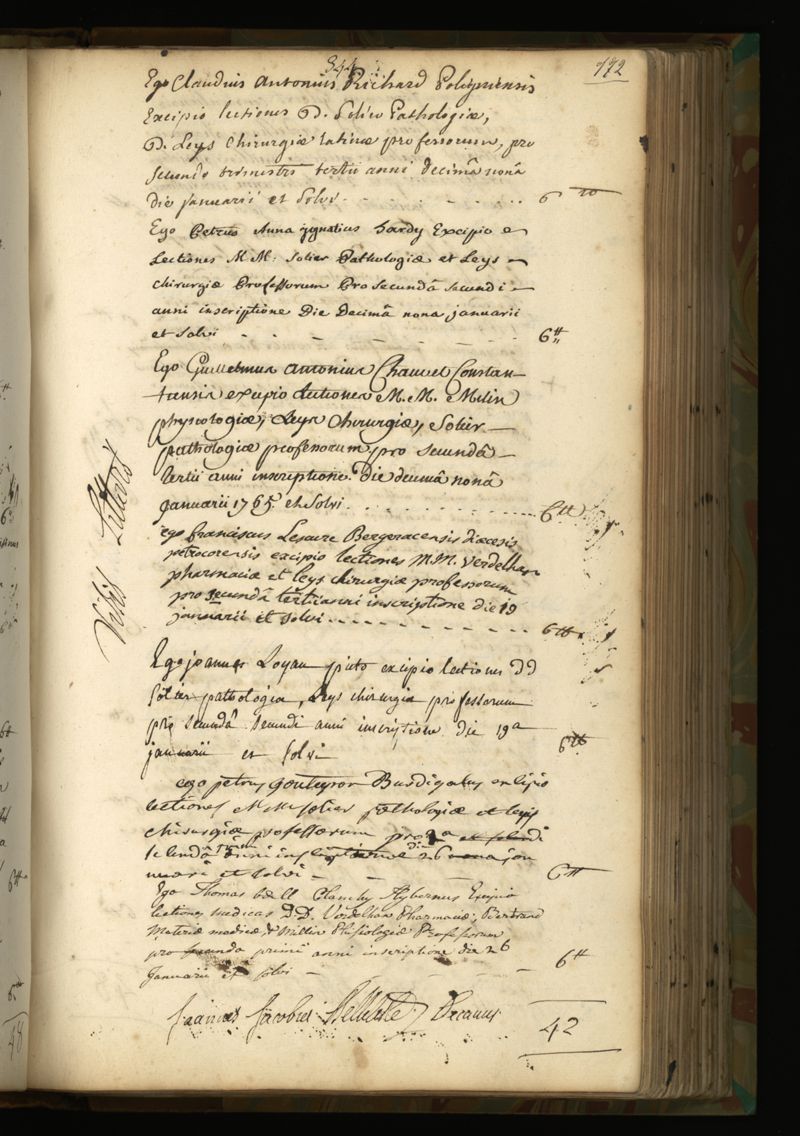 344
192
Ego Claudius antonius Richard Polignensis
Excipio lectiones D. Solier Pathologiæ,
D. Leys chirurgiæ latinæ professorum, pro
secundo trimestri tertii anni decimâ nonâ
die januarii et solvi - - - - - - - 6 tt
Ego Petrus Anna ygnatius hardy Excipio e
Lectiones M M. Solier Pathologiæ et Leys
chirurgiæ Professorum Pro secundâ secundi
anni inscriptione Die Decimâ nona januarii
et solvi - - - - - - - 6 tt
Ego Guillelmus antonius Chauvet Constan-
tiensis excipio lectiones M. M. Melin
physiologiæ, Leys chirurgiæ, Solier
pathologiæ professorum pro secundâ
tertii anni inscriptione. Die decimâ nonâ
januarii 1765. et solvi - - - - - - - 6 tt
ego franciscus Lesure Bergeracensis diœcesis
petrocorensis excipio lectiones M.M. verdelhan
pharmaciæ et leys chirurgiæ professorum
pro secundâ tertii anni inscriptione die 19
januarii et solvi - - - - - - - 6 tt
Vidit
Ego joannes Loyau excipio lectiones DD
solier pathologia, Leys chirurgia professorum
pro secundâ secundi anni inscriptione die 19a
januarii et solvi 6 tt
ego petrus gouteyron Burdigalus excipio
lectiones M M solier pathologiæ et leys
chirurgiæ professorum pro 2a
secundâ anni inscriptione die 26 jan
uarii et solvi - - - 6 tt
Ego Thomas bell Clanchy Hybernus Excipio
lectiones medicas D.D. Verdelhan Pharmaciæ, Bertrand
Materiæ medicæ, & Millin Phisiologiæ Professorum
pro secunda primi anni inscriptione die 26
Januarii et solvi - - - - 6 tt
Joannes Jacobus Belleteste Decanus
42